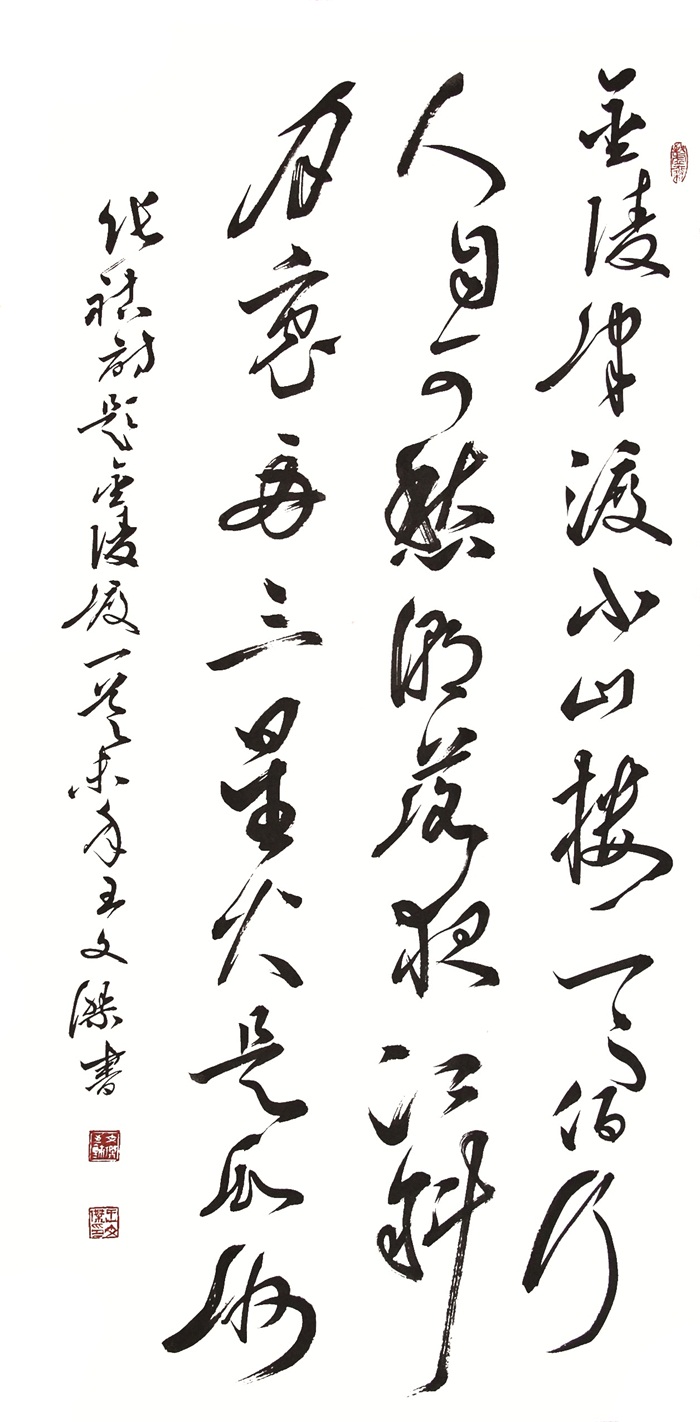 金陵津渡小山樓一宿行
人自可愁潮落夜江斜
月裏兩三星火是瓜洲
張祜詩題金陵渡一首乙未年王文傑書